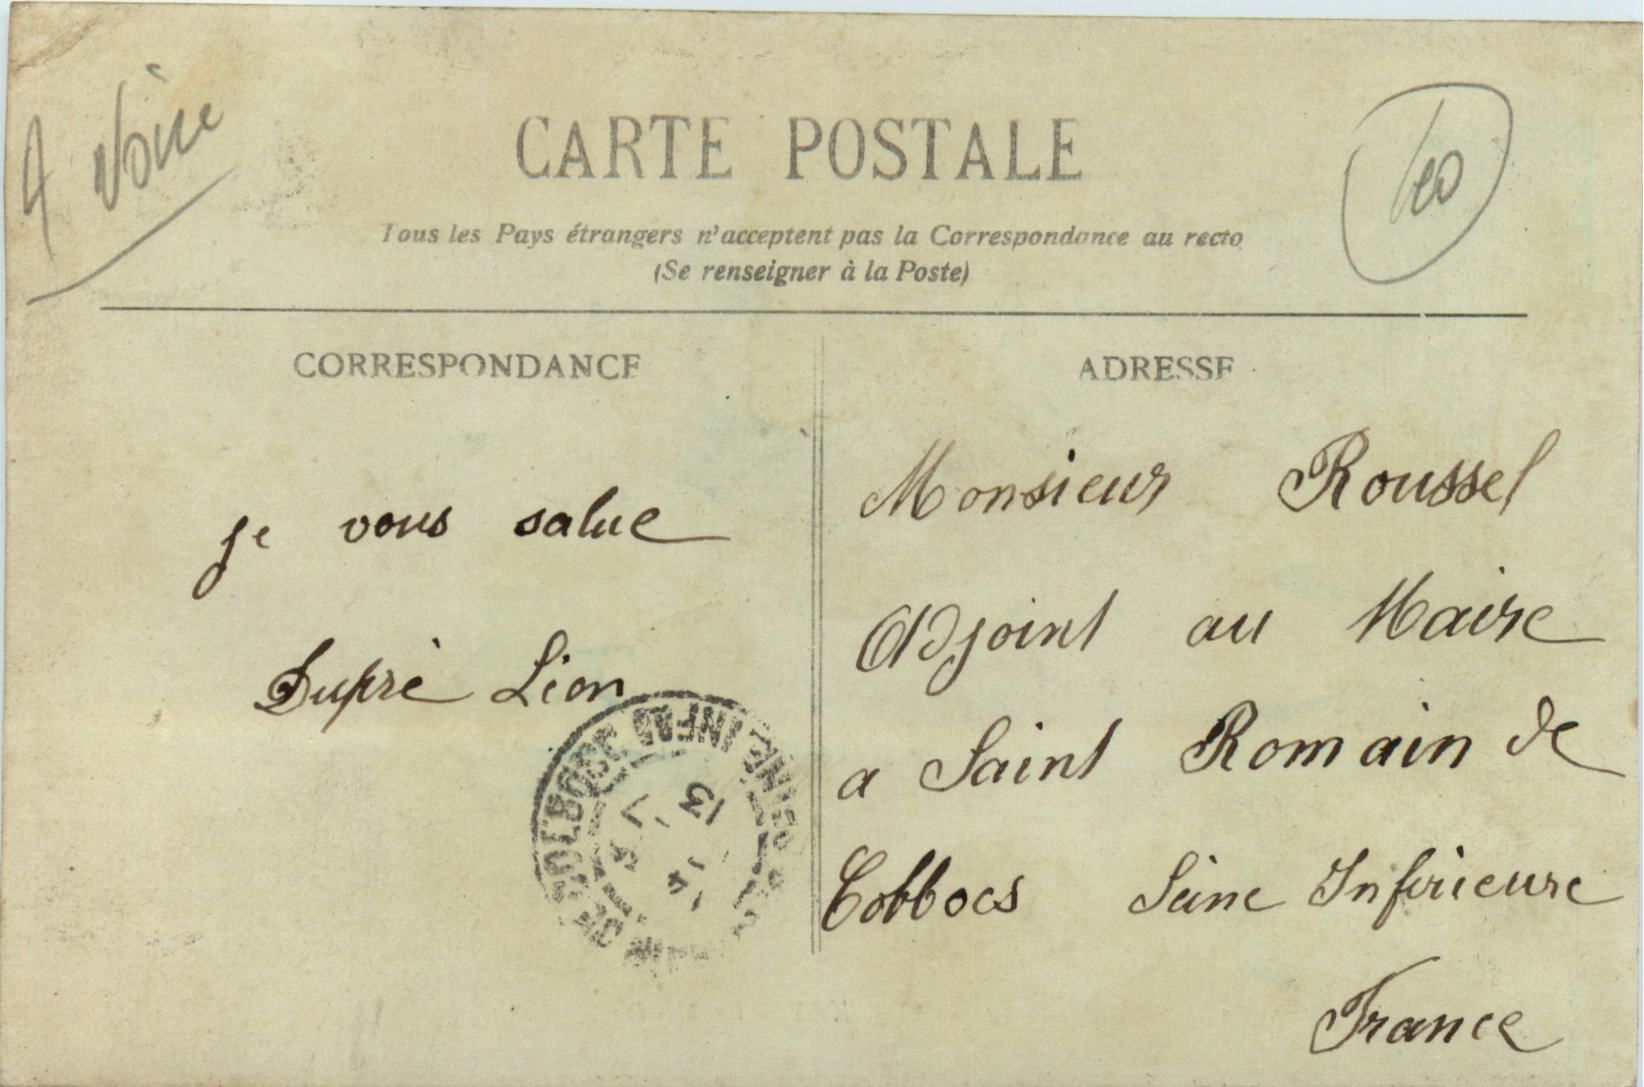 CARTE POSTALE
Tous les Pays étrangers n'acceptent pas la Correspondance au recto
(Se renseigner à la Poste)
CORRESPONDANCE
ADRESSE
je vous salue
Dupré Lion
Monsieur Roussel
Adjoint au Maire
a Saint Romain de
Cobbocs Seine Inférieure
France
COLBOSC SEINE-INFRE
13
14